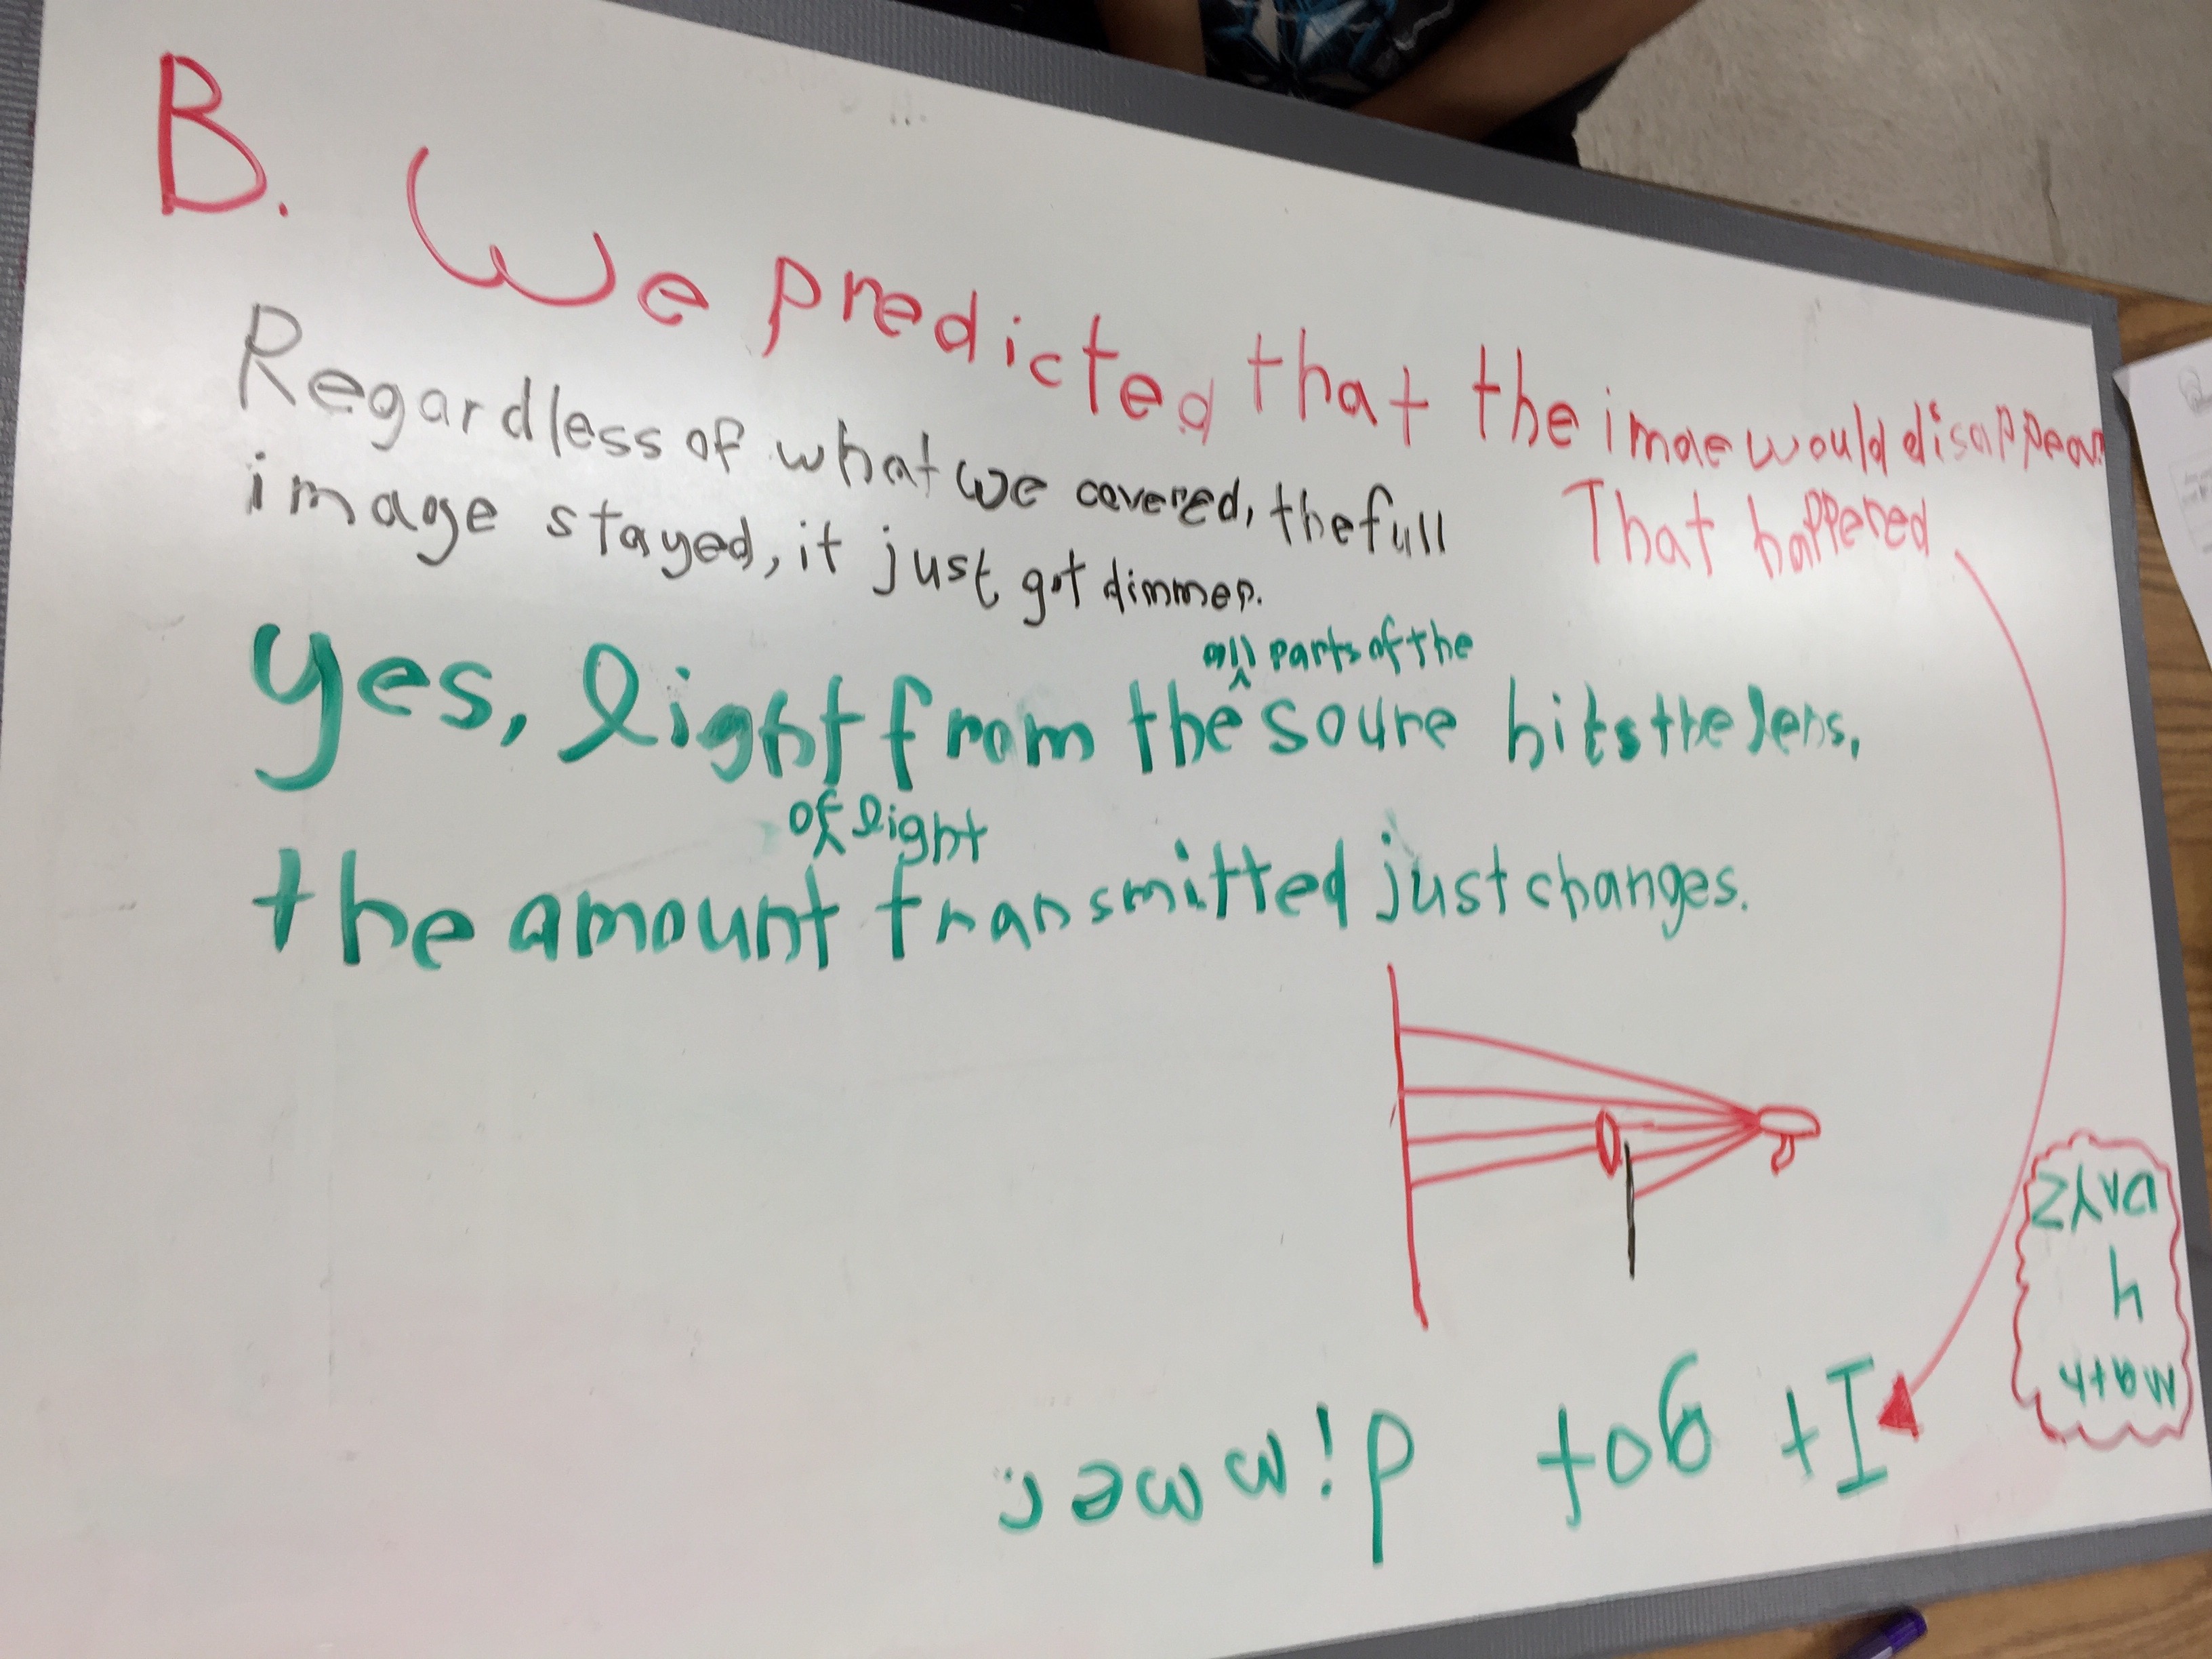 B. We predicted that the imae would disappear
That happened
Regardless of what we covered, the full
image stayed, it just got dimmer.
all parts of the
yes, light from the ^ soure hits the lens,
of light
the amount ^ transmitted just changes.
DAYZ
4
math
It got dimmer.